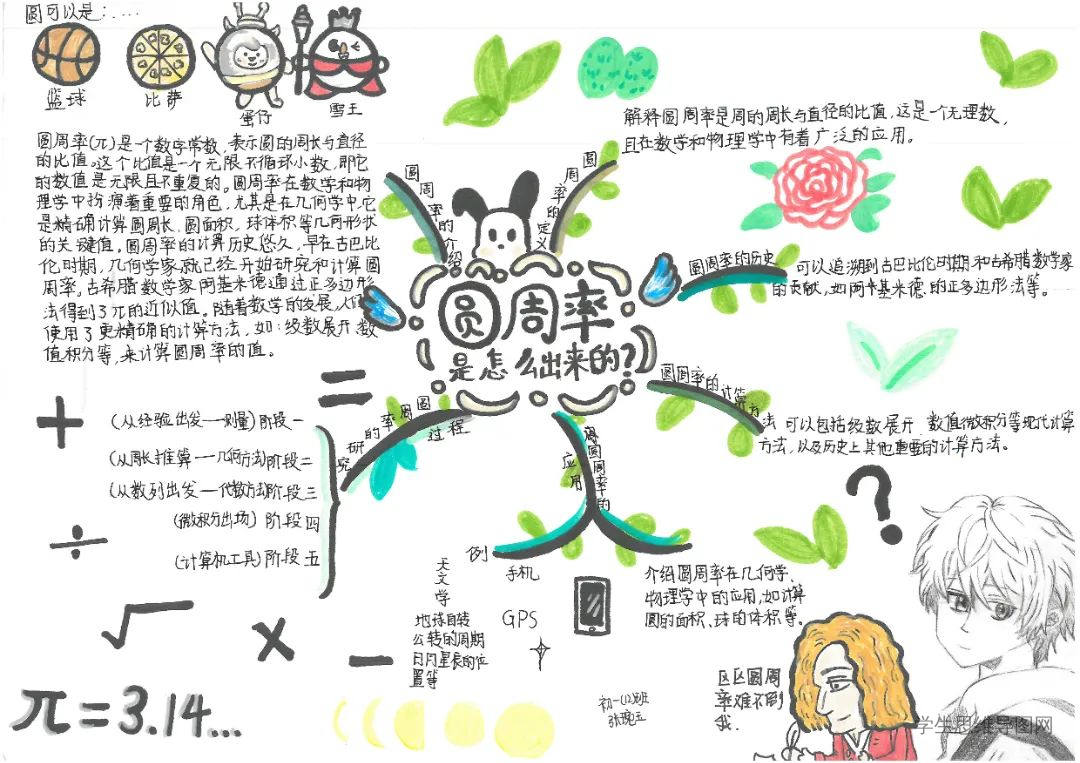 圆可以是:....
篮球
比萨
蛋仔
雪王
圆周率(π)是一个数学常数，表示圆的周长与直径
的比值。这个比值是一个无限不循环小数，即它
的数值是无限且不重复的。圆周率在数学和物
理学中扮演着重要的角色，尤其是在几何学中，它
是精确计算圆周长，圆面积，球体积等几何形状
的关键值。圆周率的计算历史悠久，早在古巴比
伦时期，几何学家就已经开始研究和计算圆
周率。古希腊数学家阿基米德通过正多边形
法得到了π的近似值。随着数学的发展，人们
使用了更精确的计算方法，如：级数展开、数
值积分等，来计算圆周率的值。
解释圆周率是周的周长与直径的比值，这是一个无理数，
且在数学和物理学中有着广泛的应用。
圆周率的介绍
圆周率的定义
圆周率的历史
可以追溯到古巴比伦时期和古希腊数学家
的贡献，如阿基米德的正多边形法等。
圆周率
是怎么出来的？
圆周率的计算方法
可以包括级数展开、数值微积分等现代计算
方法，以及历史上其他重要的计算方法。
研究的率周圆
过程
(从经验出发——测量)阶段一
(从周长推算——几何方法)阶段二
(从数列出发——代数方法)阶段三
(微积分出场)阶段四
(计算机工具)阶段五
圆周率的
应用
例
手机
GPS
天文学
地球自转
公转的周期
日月星辰的位
置等
介绍圆周率在几何学、
物理学中的应用，如计算
圆的面积、球的体积等。
+
=
÷
√
×
−
?
π=3.14...
初一(12)班
区区圆周
率难不倒
我.
学生思维导图网